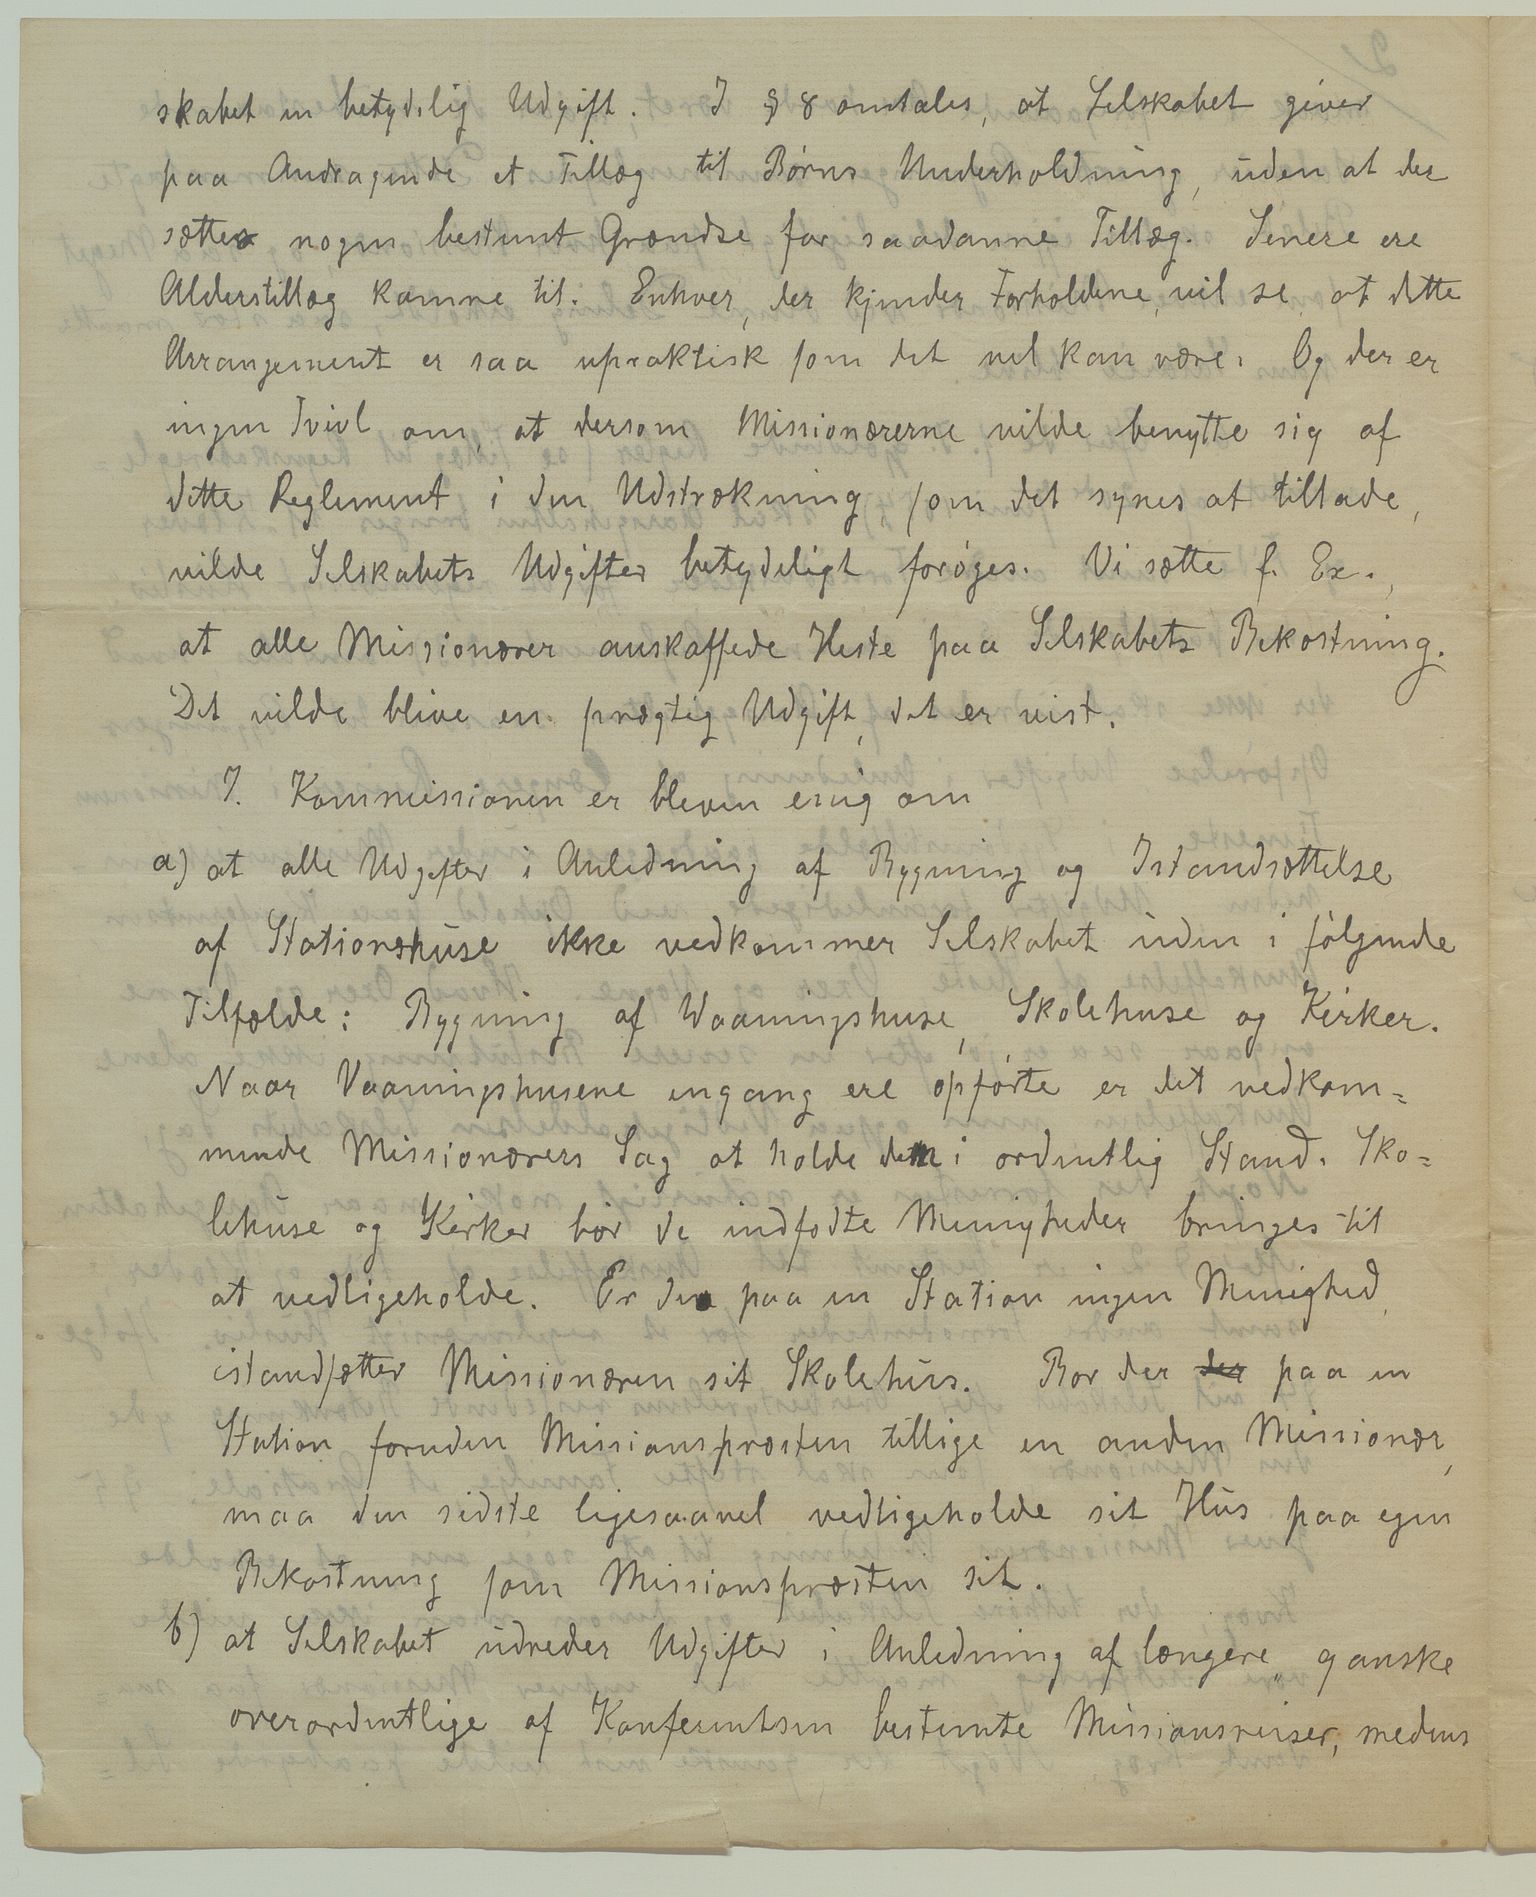 skabet en betydelig Udgift. I § 8 omtales, at Selskabet giver
paa Andragende et Tillæg til Børns Underholdning, uden at der
sættes nogen bestemt Grændse for saadanne Tillæg. Senere ere
Alderstillæg komne til. Enhver, der kjender Forholdene, vil se, at dette
Arrangement er saa upraktisk som det vel kan være. Og der er
ingen Tvivl om, at dersom Missionærerne vilde benytte sig af
dette Reglement i den Udstrækning, som det synes at tillade,
vilde Selskabets Udgifter betydeligt forøges. Vi sætte f. Ex.,
at alle Missionærer anskaffede Heste paa Selskabets Bekostning.
Det vilde blive en prægtig Udgift, det er vist.
I. Kommissionen er bleven enig om
a) at alle Udgifter i Anledning af Bygning og Istandsættelse
af Stationshuse ikke vedkommer Selskabet uden i følgende
Tilfælde: Bygning af Vaaningshuse, Skolehuse og Kirker.
Naar Vaaningshusene engang ere opførte er det vedkom=
mende Missionærers Sag at holde dem i ordentlig Stand. Sko=
lehuse og Kirker bør de indfødte Menigheder bringes til
at vedligeholde. Er der paa en Station ingen Menighed,
istandsætter Missionæren sit Skolehus. Bor der der paa en
Station foruden Missionspræsten tillige en anden Missionær,
maa den sidste ligesaavel vedligeholde sit Hus paa egen
Bekostning som Missionspræsten sit.
b) at Selskabet udreder Udgifter i Anledning af længere, ganske
overordentlige af Konferentsen bestemte Missionsreiser, medens